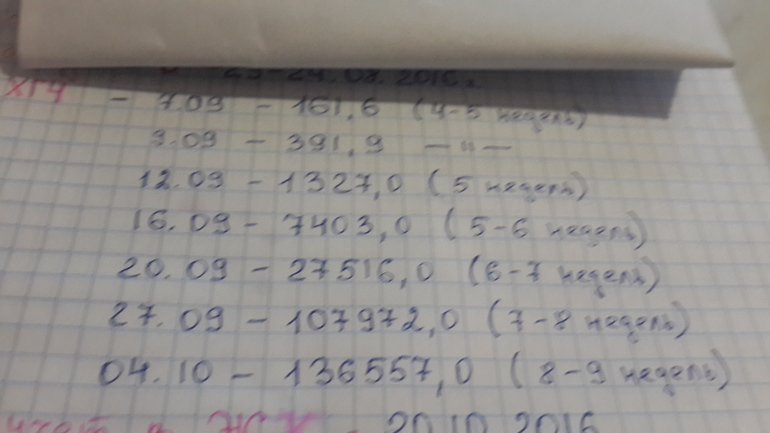 23-24.08.2016г.
ХГЧ - 7.09 - 161,6 (4-5 недель)
9.09 - 391,9 —"—
12.09 - 1327,0 (5 недель)
16.09 - 7403,0 (5-6 недель)
20.09 - 27516,0 (6-7 недель)
27.09 - 107972,0 (7-8 недель)
04.10 - 136557,0 (8-9 недель)
20.10.2016